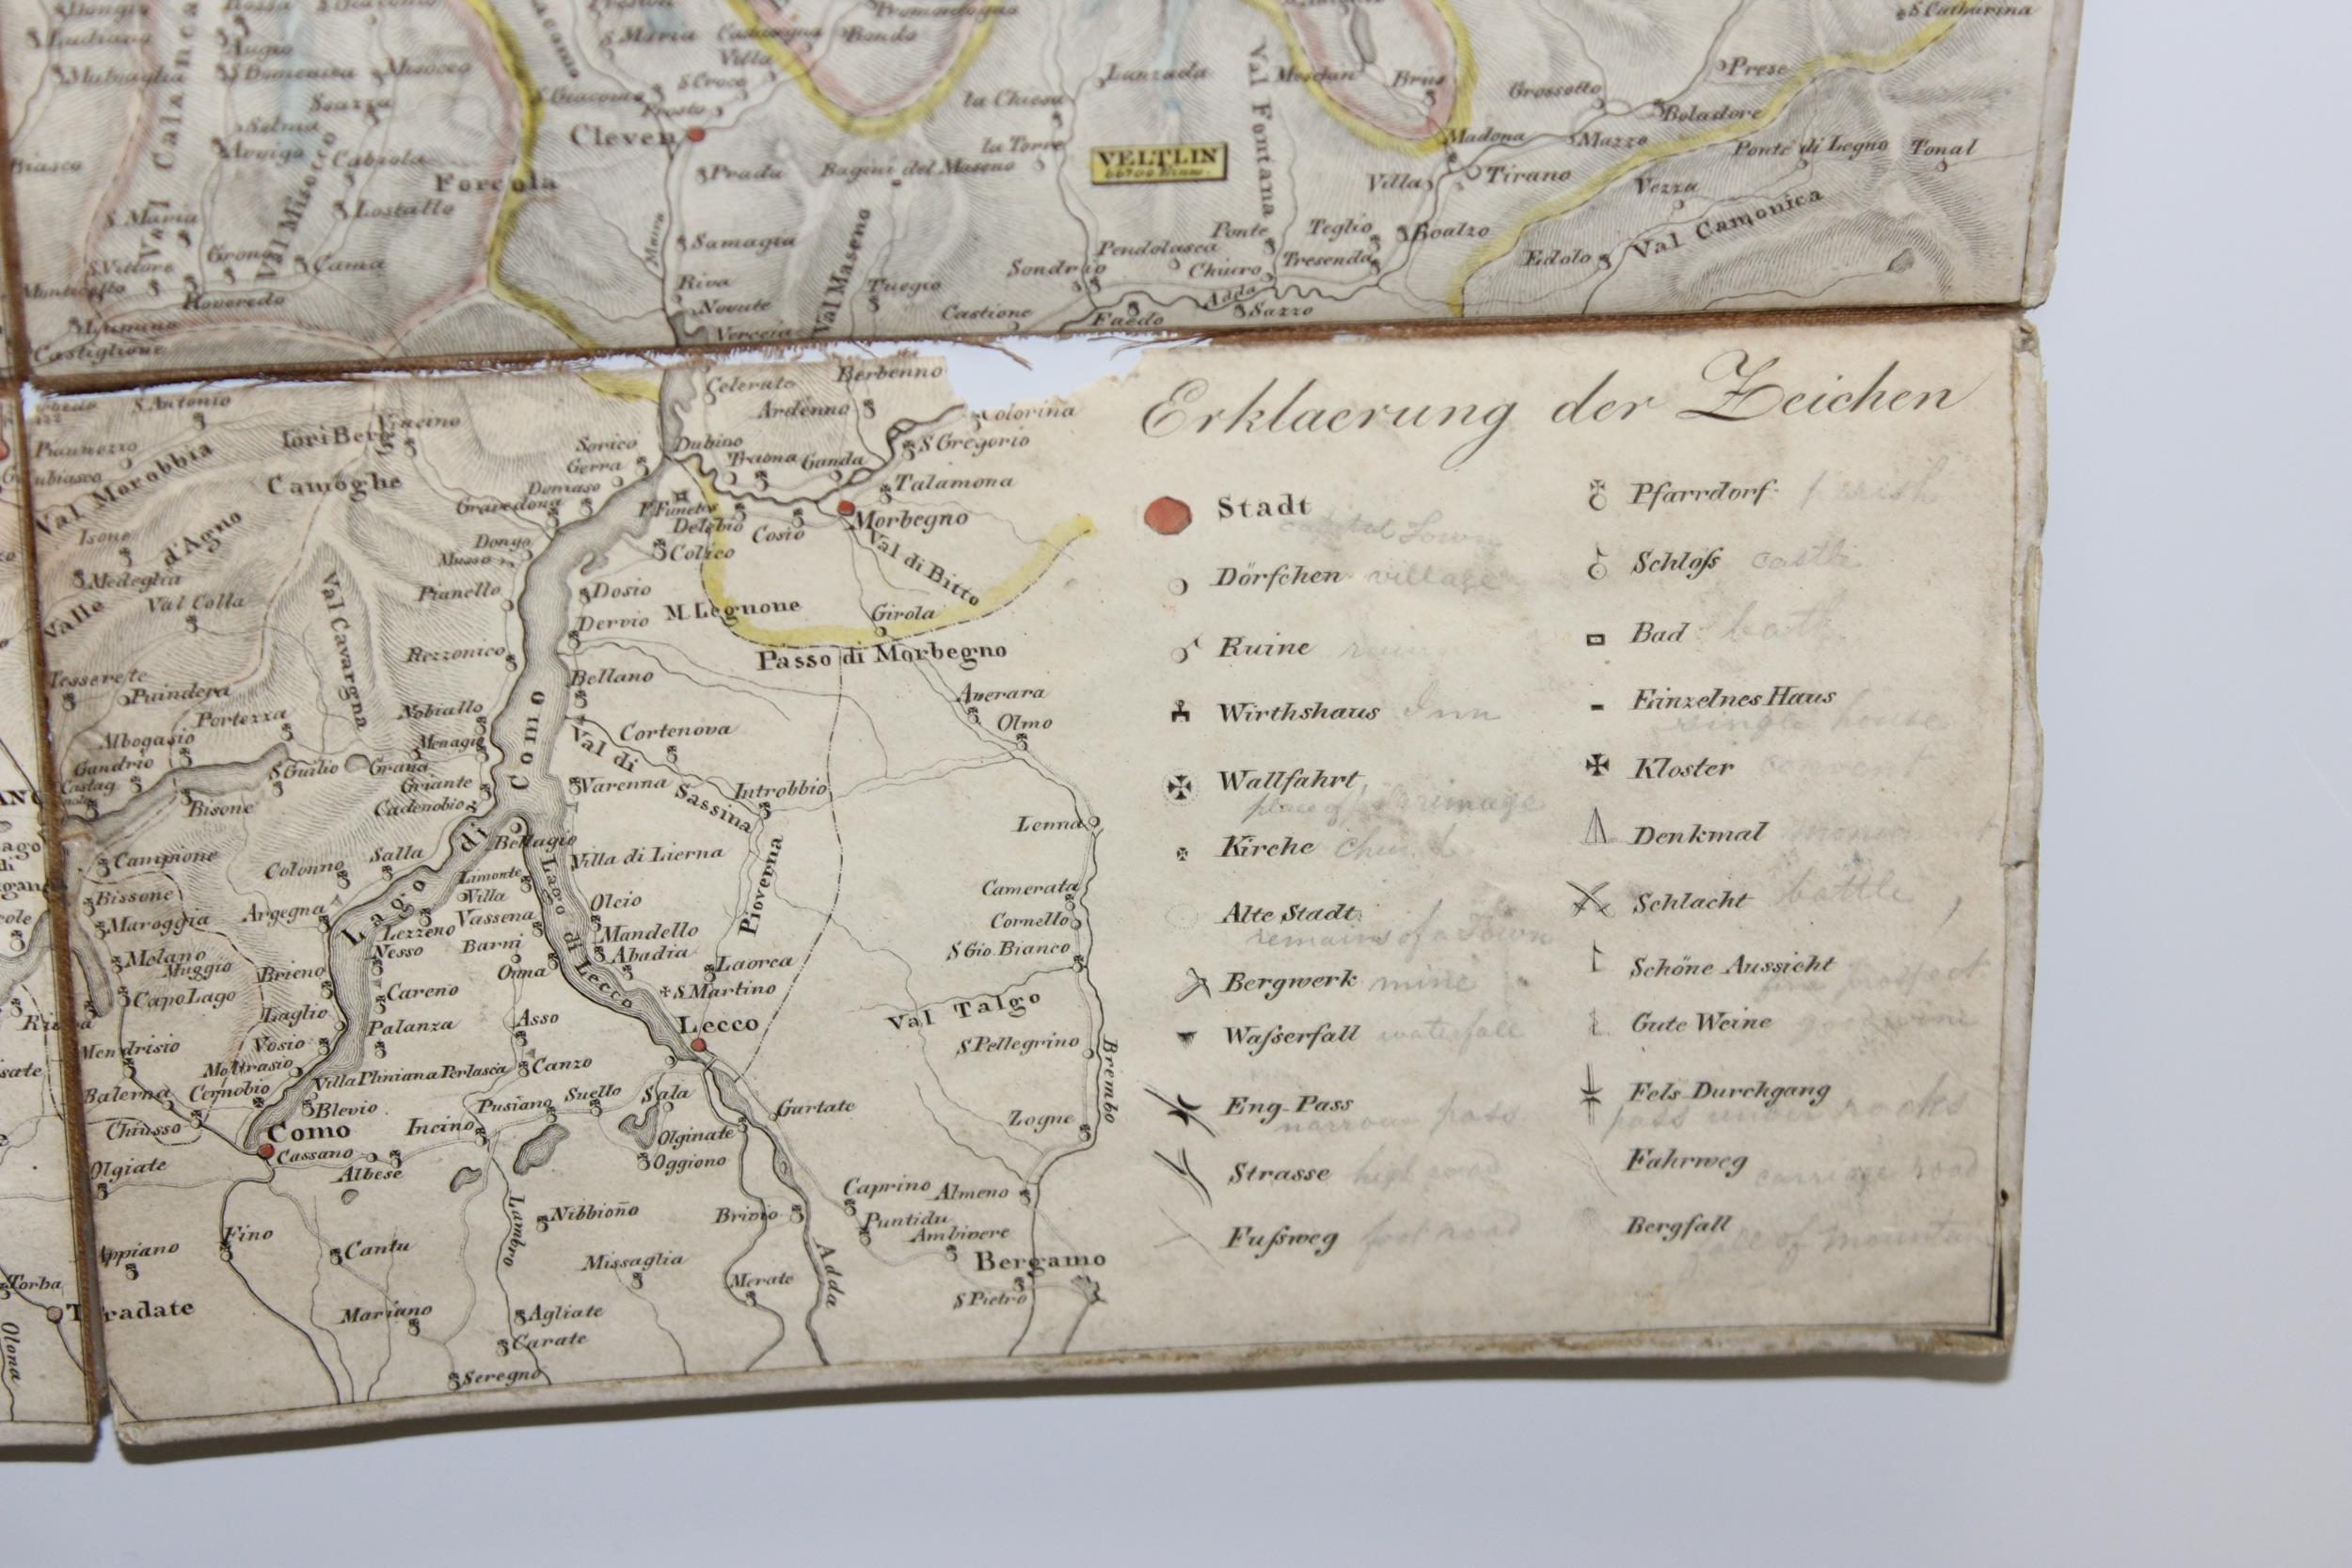 Dongio
S. Maria
Bondo
Villa
S. Catharina
Ludiano
Augio
Malvaglia
S. Domenica
Misocco
S. Croce
Lanzada
Meschin
Brüs
Grossotto
Prese
Soazza
S. Giacomo
Prosto
la Chiesa
Boladore
Val Fontana
Val Calanca
Selma
Arvigo
Cabiola
Cleven
la Torre
VELTLIN
Madona
Mazzo
Ponte di Legno
Tonal
Biasco
Forcola
Prada
Bagini del Maseno
Villa
Tirano
Vezza
S. Maria
Val Misocco
Lostallo
Maira
Samagia
Val Maseno
Pendolasca
Ponte
Teglio
Boalzo
Val Camonica
S. Vittore
Grono
Cama
Sondrio
Chiuro
Tresenda
Edolo
Roveredo
Riva
Novate
Verceia
Tuegio
Castione
Faedo
Adda
Sazzo
Castiglione
S. Antonio
Celerato
Berbenno
Ardenno
Colorina
Iori Berg
Camoghe
Val Morobbia
Sorico
Gerra
Dubino
Traona
Ganda
S. Gregorio
Domaso
Gravedona
F. Fuentes
Delebio
Cosio
Talamona
Morbegno
Isone
d'Agno
Dongo
Musso
Colico
Val di Bitto
Medeglia
Valle
Val Colla
Val Cavargna
Pianello
Dosio
M. Legnone
Girola
Dervio
Rezzonico
Passo di Morbegno
Tesserete
Puindera
Bellano
Averara
Olmo
Portezza
Nobiallo
Cortenova
Albogasio
Gandrio
Menagio
Val di Sassina
S. Guilio
Grana
Griante
Varenna
Introbbio
Castag
Bisone
Cadenobio
Lago di Como
Bellagio
Lenna
Campione
Colonno
Salla
Villa di Lierna
Limonte
Villa
Piovena
Camerata
Bissone
Maroggia
Argegna
Lezzeno
Vassena
Olcio
Cornello
Mandello
Lago di Lecco
Melano
Muggio
Nesso
Barni
Abadia
S. Gio. Bianco
Brieno
Onna
Laorca
Capo Lago
Careno
S. Martino
Val Talgo
Laglio
Palanza
Asso
Lecco
Mendrisio
Vosio
S. Pellegrino
Moltrasio
Villa Pliniana
Perlasca
Canzo
Brembo
Balerna
Cernobio
Blevio
Pusiano
Suello
Sala
Gartate
Zogne
Chiusso
Como
Incino
Olginate
Cassano
Oggiono
Olgiate
Albese
Caprino
Almeno
Lambro
Nibbiono
Brivio
Puntidu
Ambivere
Fino
Cantu
Appiano
Missaglia
Adda
Bergamo
Torba
Merate
S. Pietro
Tradate
Mariano
Agliate
Olona
Carate
Seregno
Erklaerung der Zeichen
Stadt
capital Town
Dörfchen village
Ruine ruins
Wirthshaus Inn
Wallfahrt,
place of pilgrimage
Kirche Church
Alte Stadt.
remains of a Town
Bergwerk mine
Waſserfall waterfall
Eng-Pass
narrow pass
Strasse high road
Fuſsweg foot road
Pfarrdorf parish
Schloſs castle
Bad bath
Einzelnes Haus
single house
Kloster convent
Denkmal
Schlacht battle
Schöne Aussicht
fine prospect
Gute Weine good wine
Fels Durchgang
pass under rocks
Fahrweg carriage road
Bergfall
fall of mountain